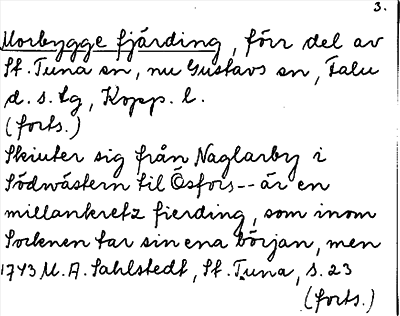 3.
Morbygge fjärding, förr del av
St. Tuna sn, nu Gustavs sn, Falu
d. s. tg, Kopp. l.
(forts.)
Skiuter sig från Naglarby i
Södwästern til Ösfors -- är en
millankretz fierding, som inom
Socknen tar sin ena början, men
1743 U. A. Sahlstedt, St. Tuna, s. 23
(forts.)